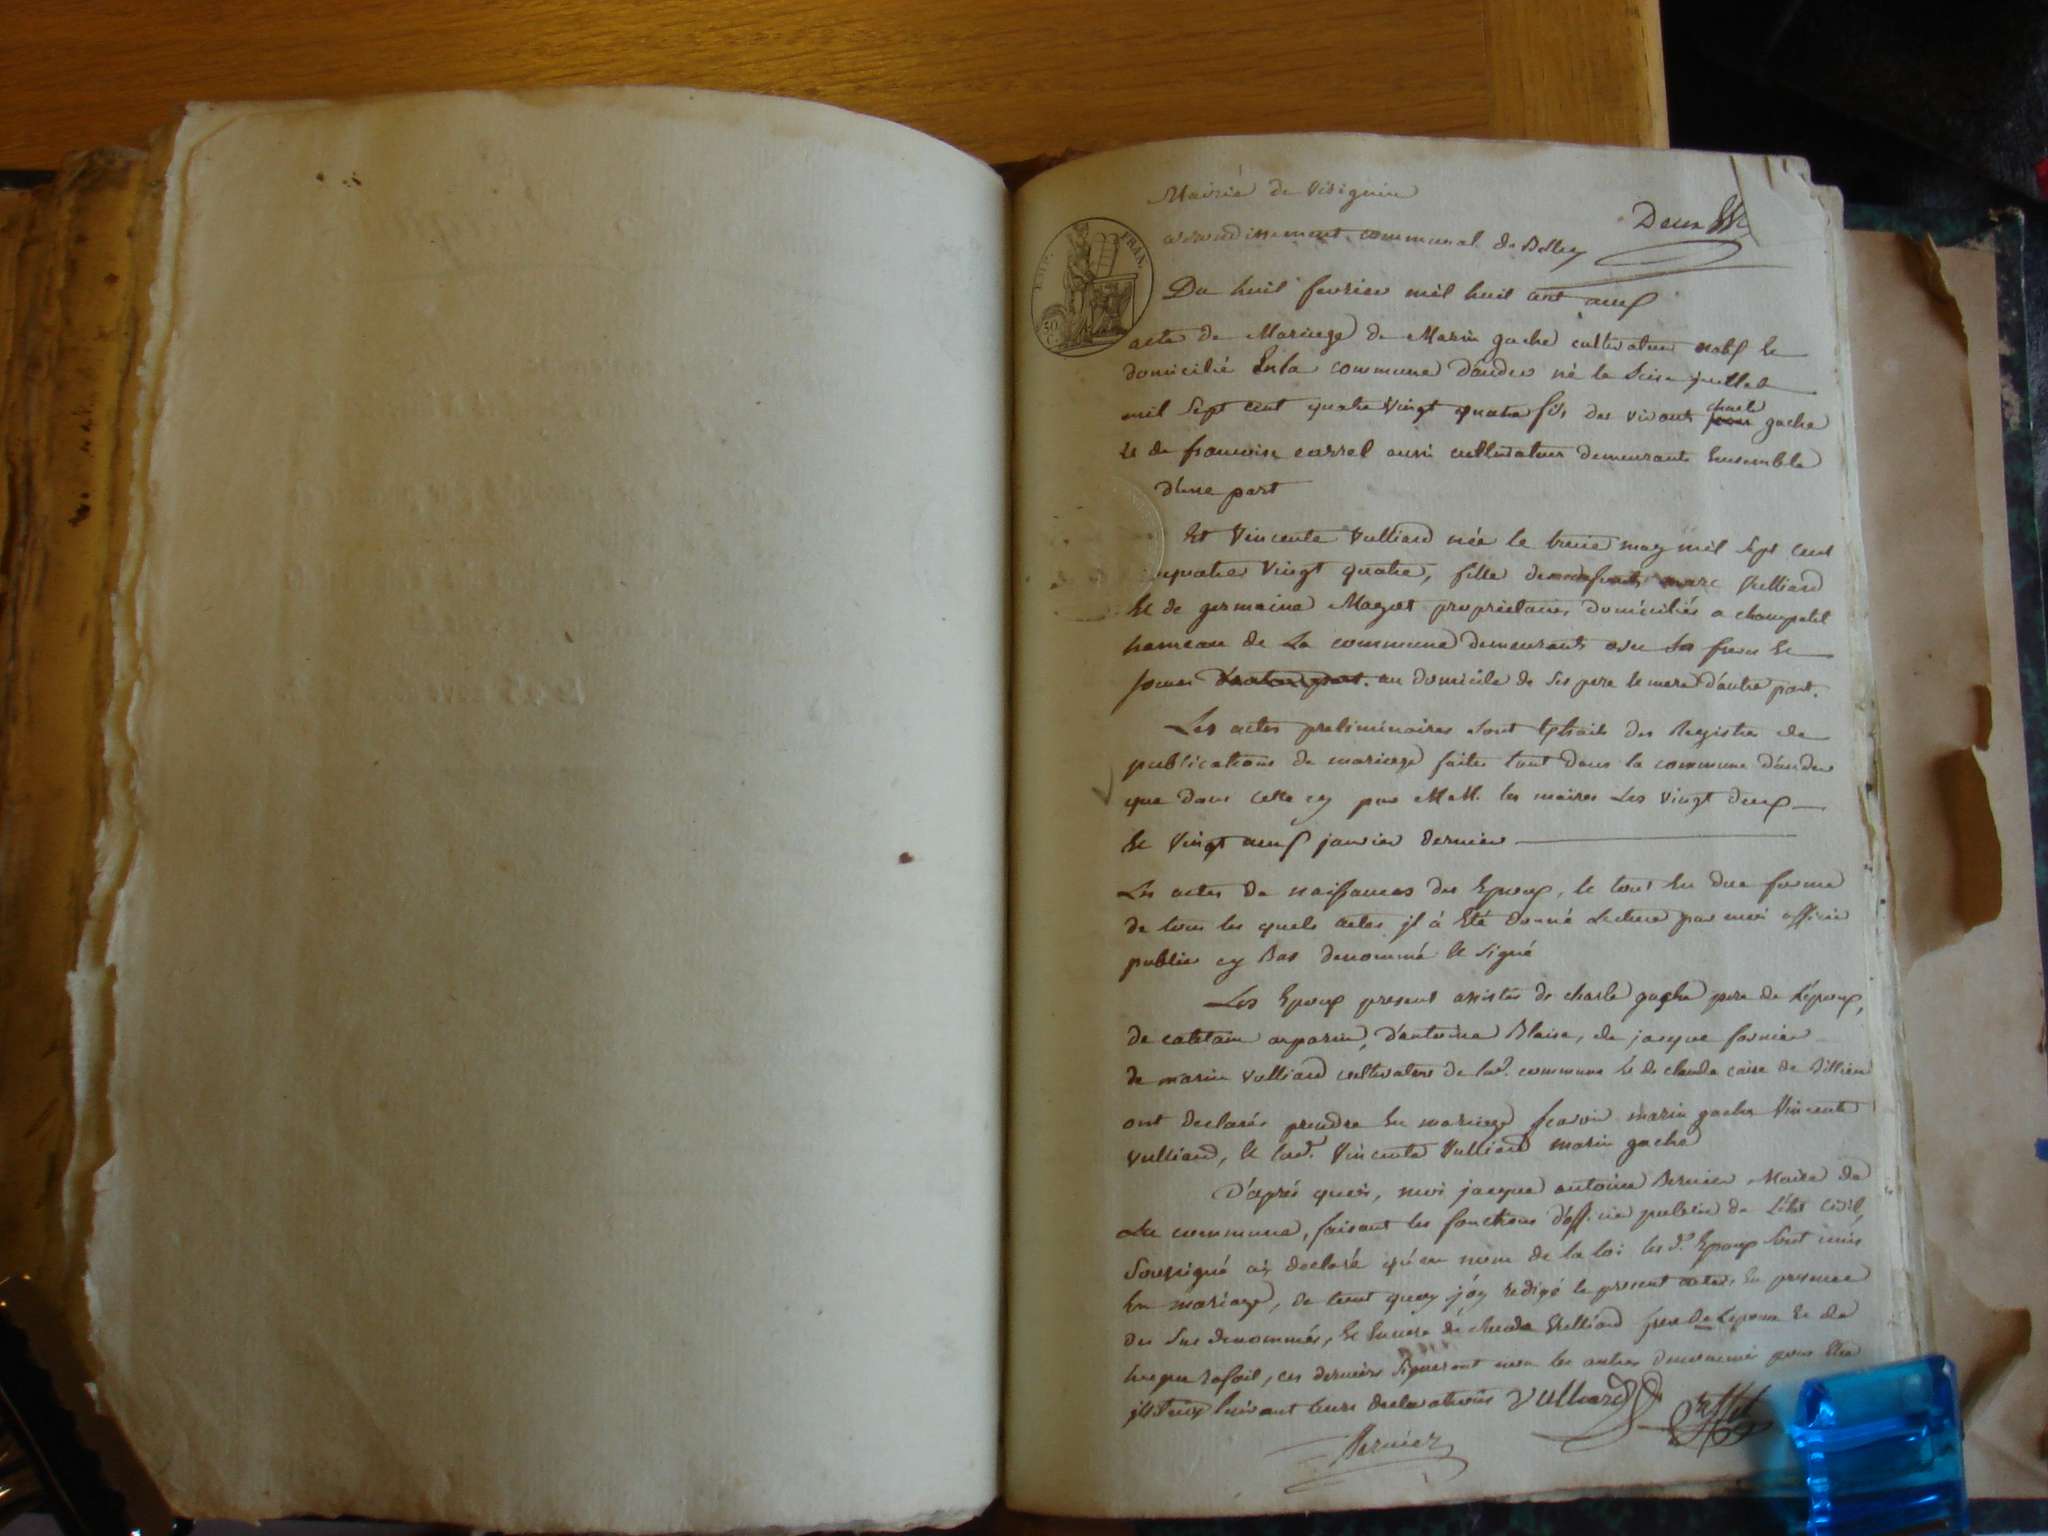 Mairie de Virignin
arrondissement communal de Belley
Deux
EMP. FRAN.
50
C.
Du huit fevrier mil huit cent neuf
acte de Mariage de Marin gache cultivateur natif et
domicilié En la commune d'andert né le seise juillet
mil sept cent quatre vingt quatre fils des vivants charle gache
et de francoise carrel aussi cultivateurs demeurants Ensemble
d'une part
Et Vincente Vulliard née le treise may mil sept cent
quatre vingt quatre, fille marc Vulliard
Et de germaine proprietaires domiciliés a champetel
hameau de La commune demeurante avec frere Et
soeur au domicile de ses pere et mere d'autre part.
Les actes preliminaires sont Extraits des Registres de
publications de mariage faites tant dans la commune d'andert
que dans celle cy par MM. les maires Les vingt deux
Et vingt neuf janvier dernier
Les actes de naissances des Epoux, le tout En due forme
de tous les quels actes jl à Eté donné Lecture par moi officier
public cy Bas denommé Et signé
Les Epoux present assistés de charle gache pere de L'epoux,
de d'antoine Blaise, de jacque fornier
de marin vulliard cultivateurs de lad. commune Et de claude
ont declarés prendre En mariage scavoir marin gache Vincente
vulliard, Et lad. Vincente Vulliard marin gache
D'après quoi, moi jacque antoine Bernier Maire de
La commune, faisant les fonctions d'officier public de L'état civil
soussigné ai declaré qu'au nom de la loi les d. Epoux sont unis
En mariage, de tout quoy j'ay redigé le present acte, En presence
des sus denommés, Et Encore de claude Vulliard frere de L'epouse Et de
ces derniers signeront non les autres denommés pour Etre
suivant leurs declarations Vulliard
Bernier